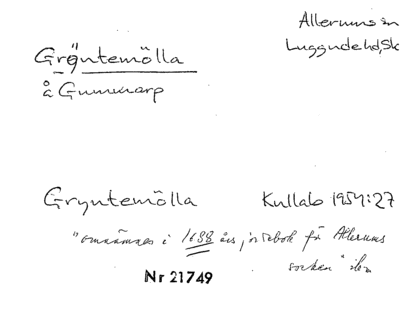 Allerums sn
Luggude hd, Sk
Gröntemölla
å Gunnarp
Gryntemölla Kullabo 1954:27
"omnämnes i 1688 års jordebok för Allerums
socken"
Nr 21749